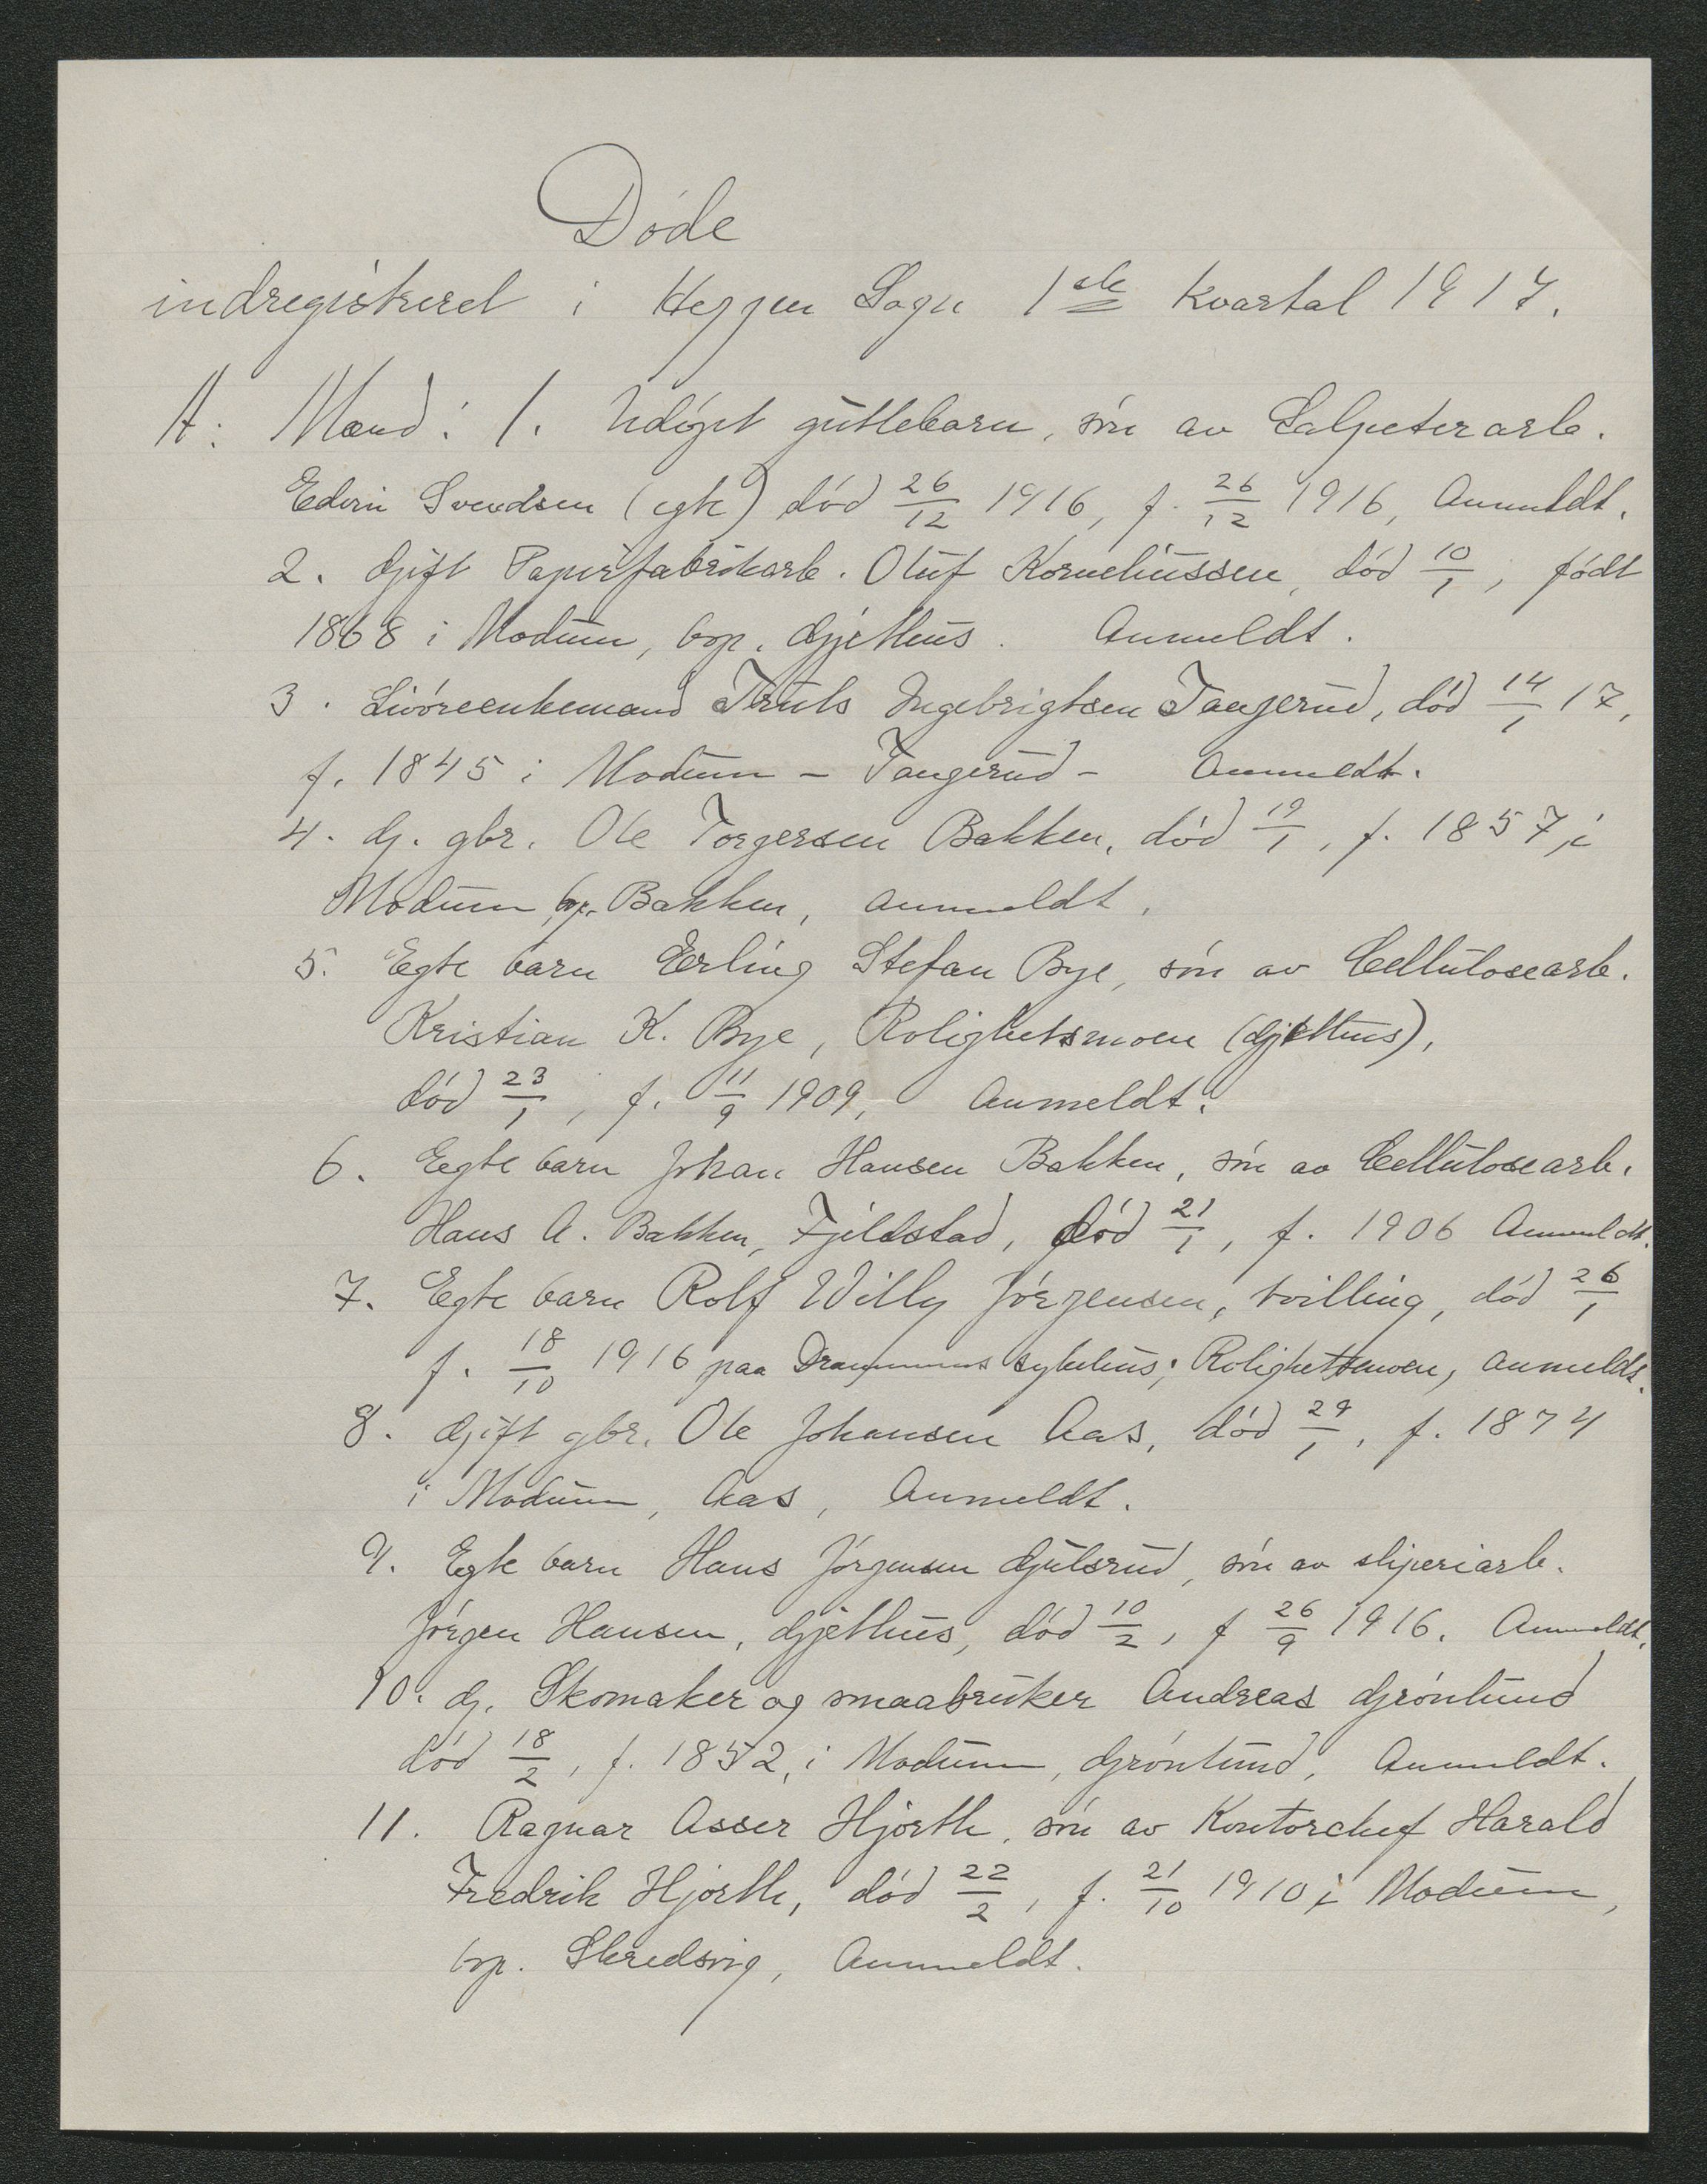 Døde
indregistreret i Heggen Sogn 1ste Kvartal 1917.
A: Mænd: 1. Udøpt guttebarn, søn av Salpeterarb.
Edvin Svendsen (egte) død 26/12 1916, f. 26/12 1916, Anmeldt.
2. Gift Papirfabrikarb. Oluf Korneliussen, død 10/1, født
1868 i Modum, bop. Gjethus. Anmeldt.
3. Livøreenkemand Truls Ingebrigtsen Tangerud, død 14/1 17,
f. 1845 i Modum - Tangerud - Anmeldt.
4. G. gbr. Ole Torgersen Bakken, død 19/1, f. 1857, i
Modum bop. Bakken, anmeldt.
5. Egte barn Erling Stefan Bye, søn av Cellulosearb.
Kristian K. Bye, Rolighetsmoen (Gjethus),
død 23/1, f. 11/9 1909, Anmeldt.
6. Egte barn Johan Hansen Bakken, søn av Cellulosearb.
Hans A. Bakken, Fjeldstad, død 21/1, f. 1906 Anmeldt.
7. Egte barn Rolf Willy Jørgensen, tvilling, død 26/1
f. 18/10 1916 paa Drammens sykehus; Rolighetsmoen, anmeldt.
8. Gift gbr. Ole Johansen Aas, død 29/1, f. 1874
i Modum, Aas, Anmeldt.
9. Egte barn Hans Jørgensen Gulsrud, søn av sliperiarb.
Jørgen Hansen, Gjethus, død 10/2, f 26/9 1916. Anmeldt.
10. G. Skomaker og smaabruker Andreas Grønlund
død 18/2, f. 1852, i Modum, Grønlund, Anmeldt.
11. Ragnar Asser Hjorth, søn av Kontorchef Harald
Fredrik Hjorth, død 22/2, f. 21/10 1910 i Modum,
bop. Skredsvig, Anmeldt.